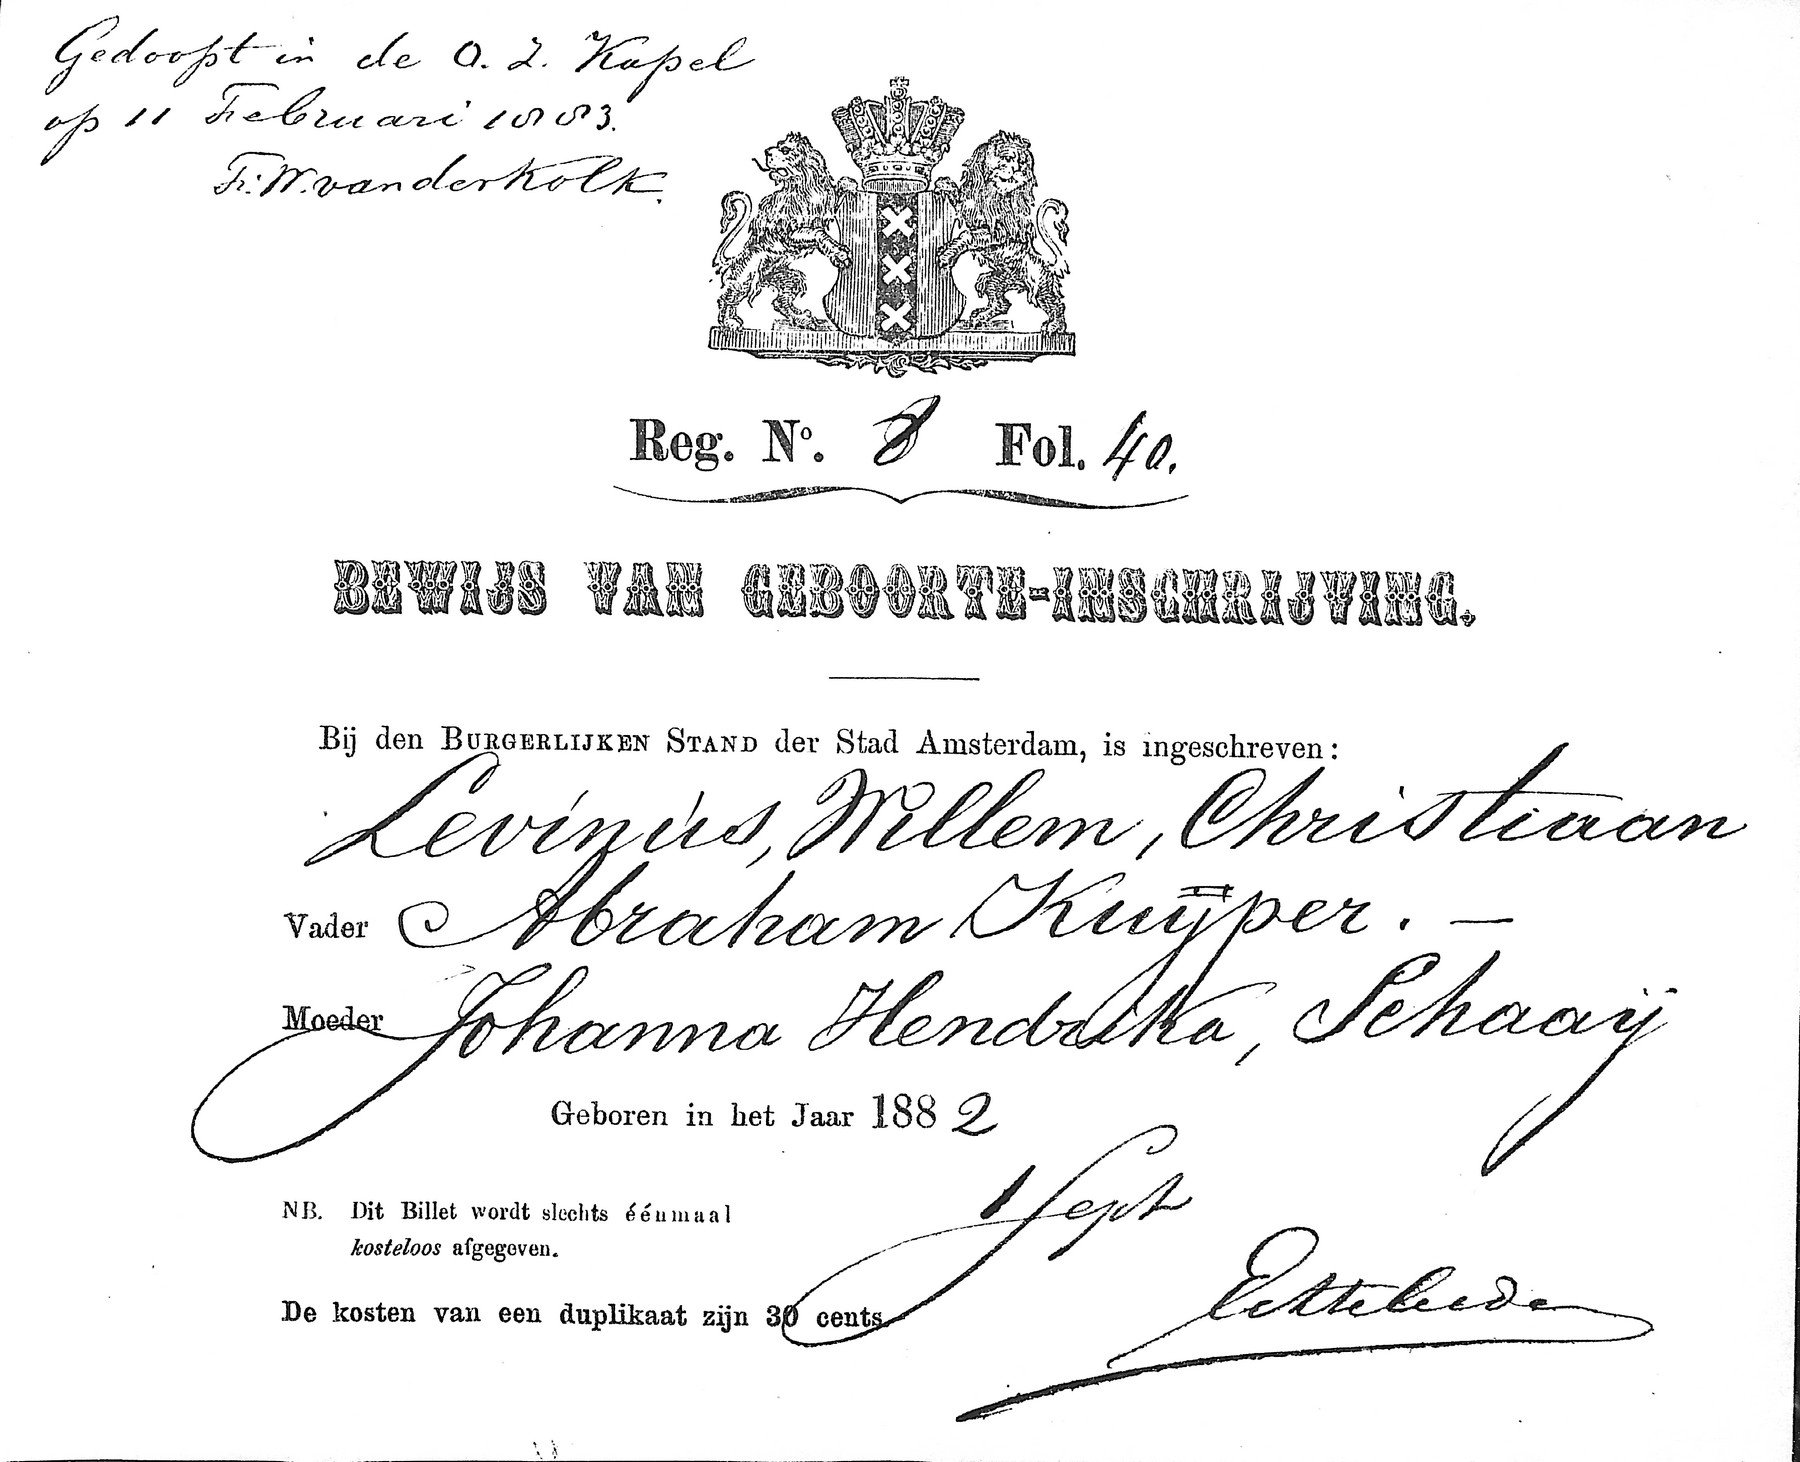 Gedoopt in de O. Z. Kapel
op 11 Februari 1883.
Fr. W. van der Kolk.
Reg. No. 8 Fol. 40.
BEWIJS VAN GEBOORTE-INSCHRIJVING.
Bij den BURGERLIJKEN STAND der Stad Amsterdam, is ingeschreven:
Levinus, Willem, Christiaan
Vader Abraham Kuÿper. —
Moeder Johanna Hendrika, Schaaÿ
Geboren in het Jaar 1882
1 Sept
NB. Dit Billet wordt slechts éénmaal
kosteloos afgegeven.
De kosten van een duplikaat zijn 30 cents.